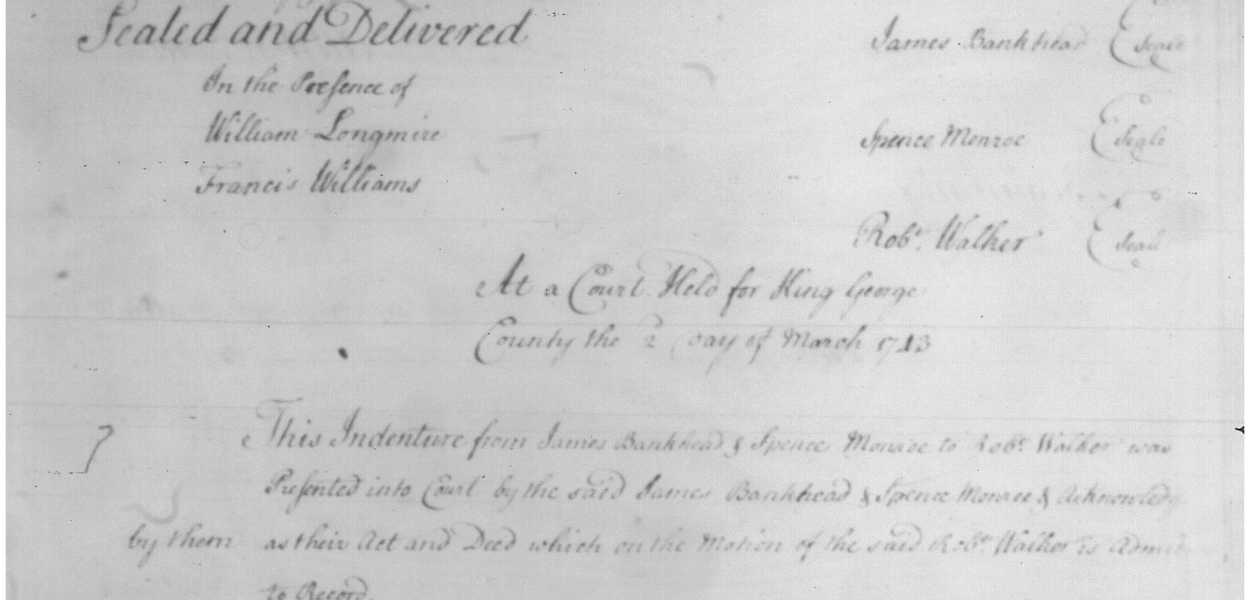 Sealed and Delivered
James Bankhead Seale
In the Presence of
William Longmire
Spence Monroe Seale
Francis Williams
Robt. Walker Seal
At a Court Held for King George
County the 2d day of March 1743
This Indenture from James Bankhead & Spence Monroe to Robt. Walker was
Presented into Court by the said James Bankhead & Spence Monroe & Acknowledg
by them as their Act and Deed which on the Motion of the said Robt. Walker is
to Record.